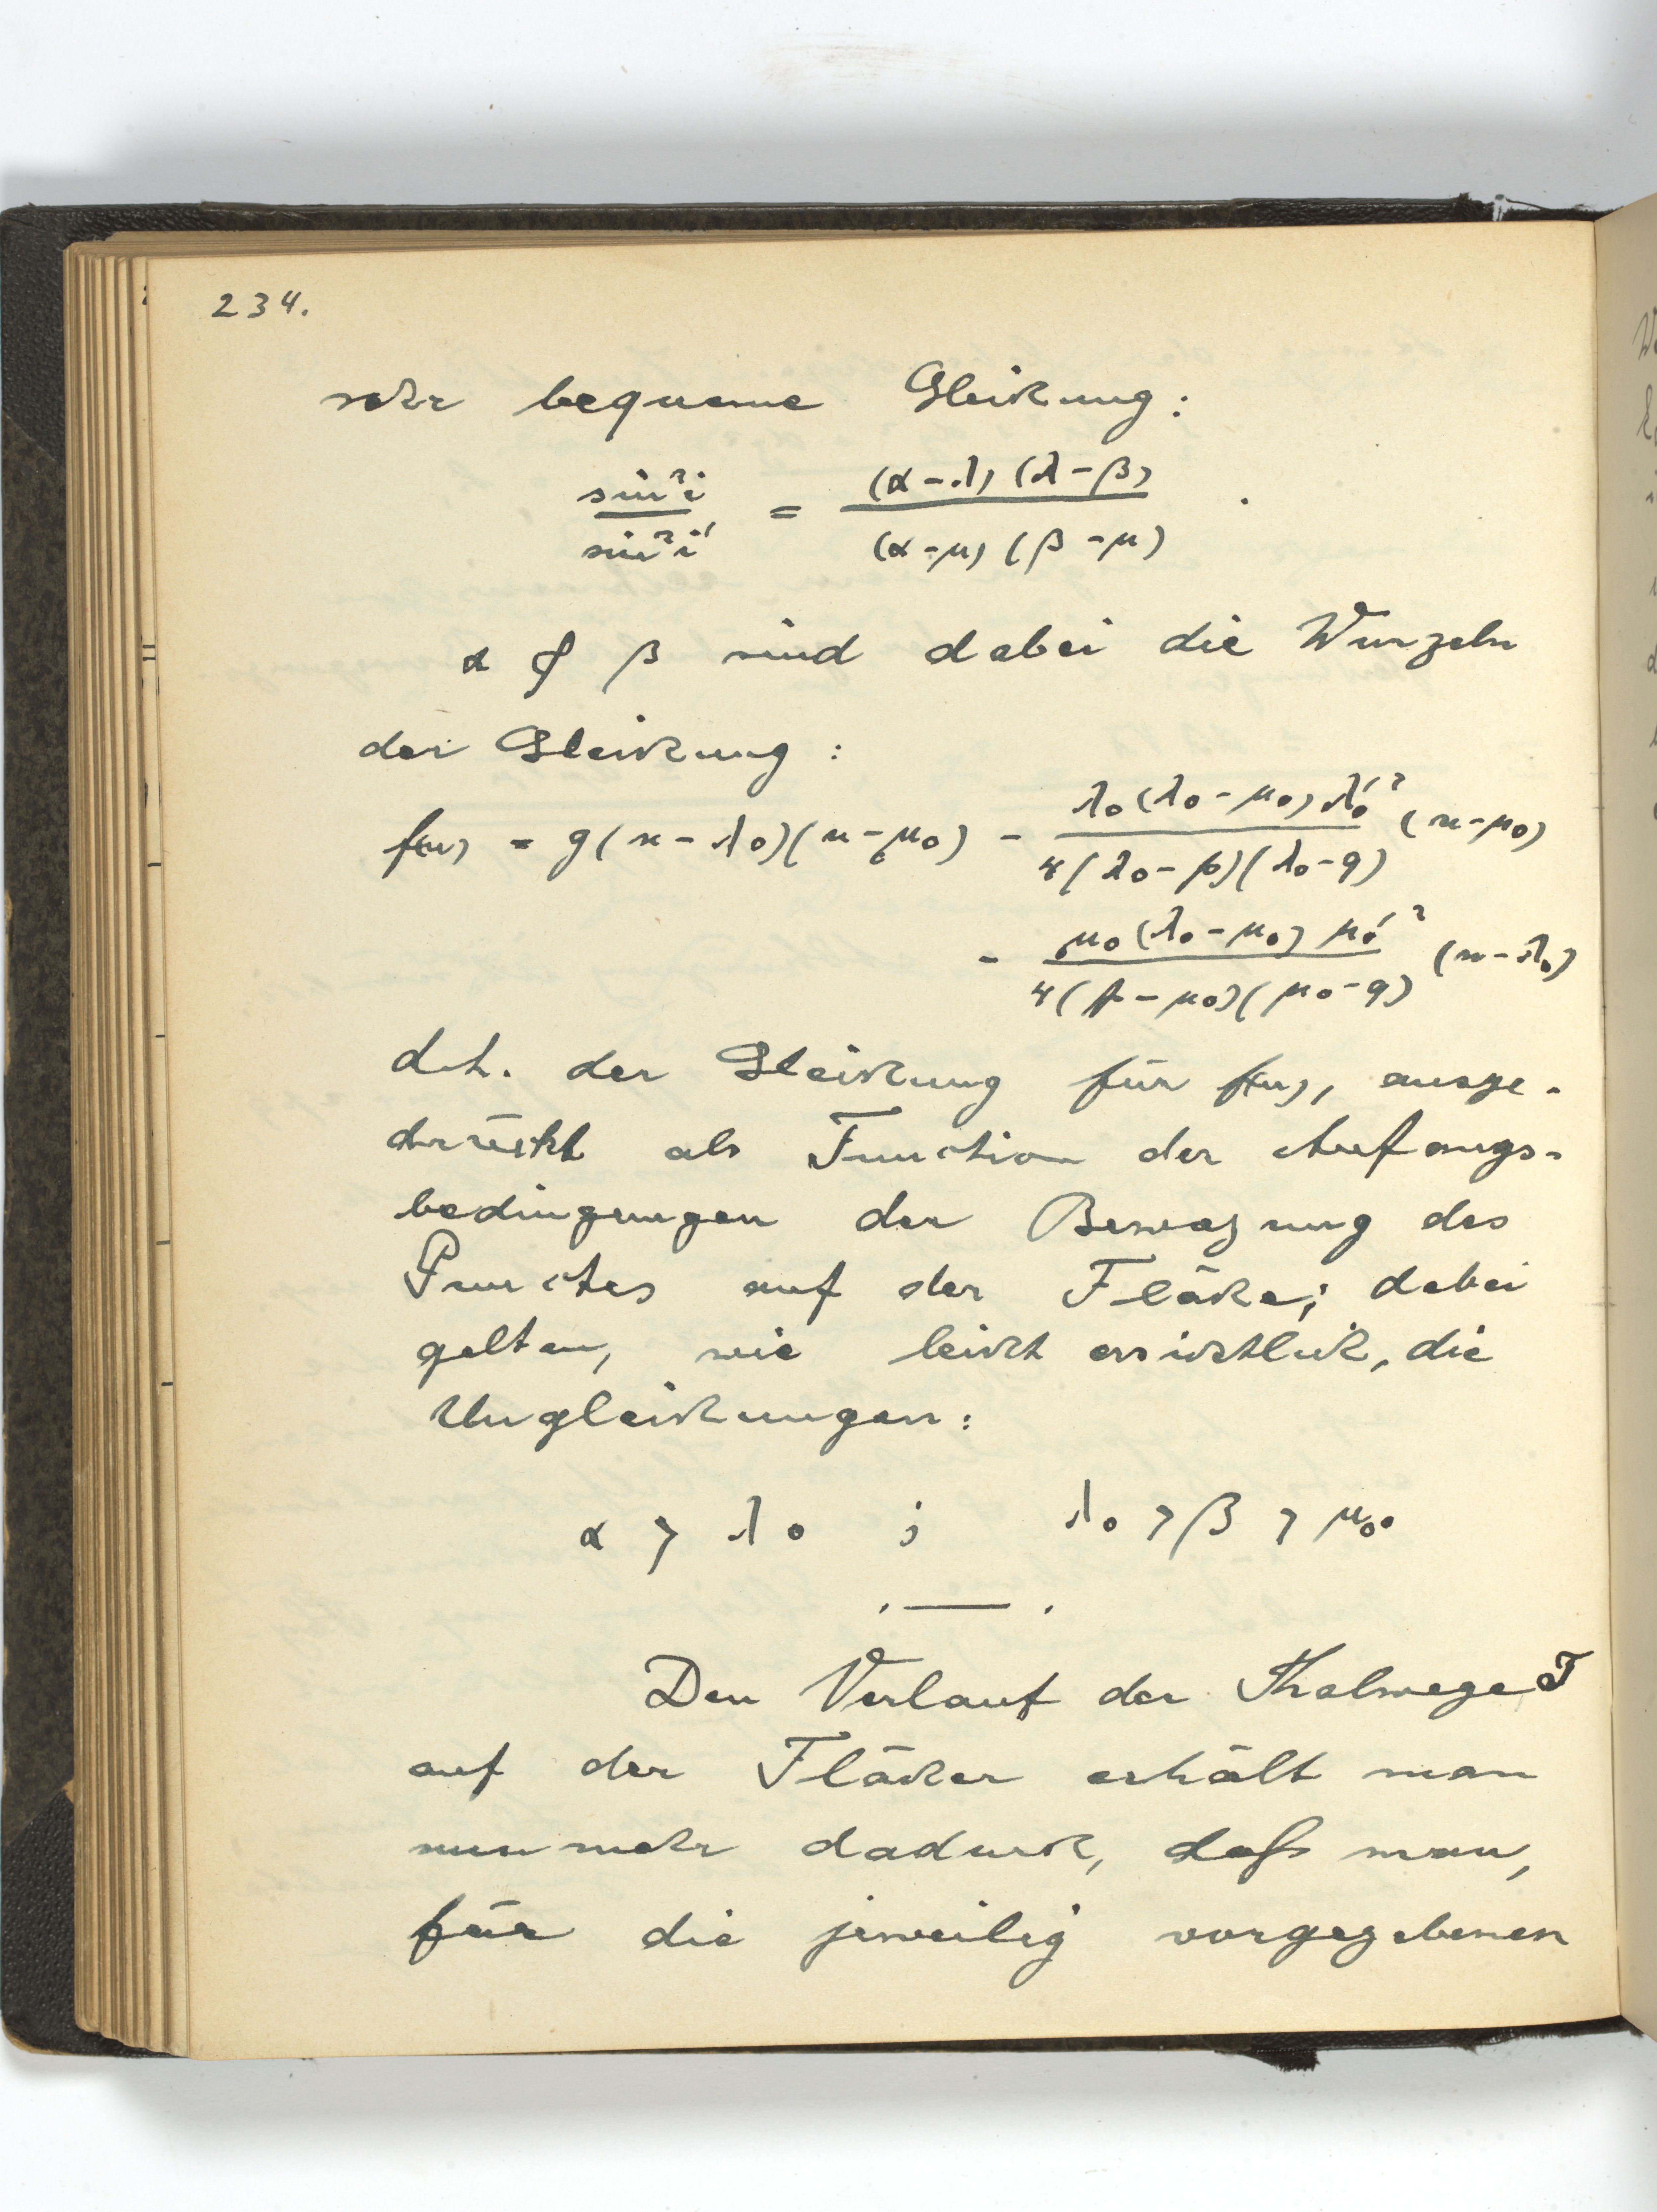 234.
sehr bequeme Gleichung:
sin²i / sin²i' = (α-λ)(λ-β) / (α-μ)(β-μ) .
α & β sind dabei die Wurzeln
der Gleichung:
f(u) = g(u-λ₀)(u-μ₀) - λ₀(λ₀-μ₀)λ₀'² / 4(λ₀-p)(λ₀-q) (u-μ₀)
- μ₀(λ₀-μ₀)μ₀'² / 4(p-μ₀)(μ₀-q) (u-λ₀)
d.h. der Gleichung für f(u), ausge-
drückt als Function der Anfangs-
bedingungen der Bewegung des
Punctes auf der Fläche; dabei
gelten, wie leicht ersichtlich, die
Ungleichungen:
α > λ₀ ; λ₀ > β > μ₀.
Den Verlauf der Thalwege T
auf der Flächen erhält man
nunmehr dadurch, daſs man,
für die jeweilig vorgegebenen